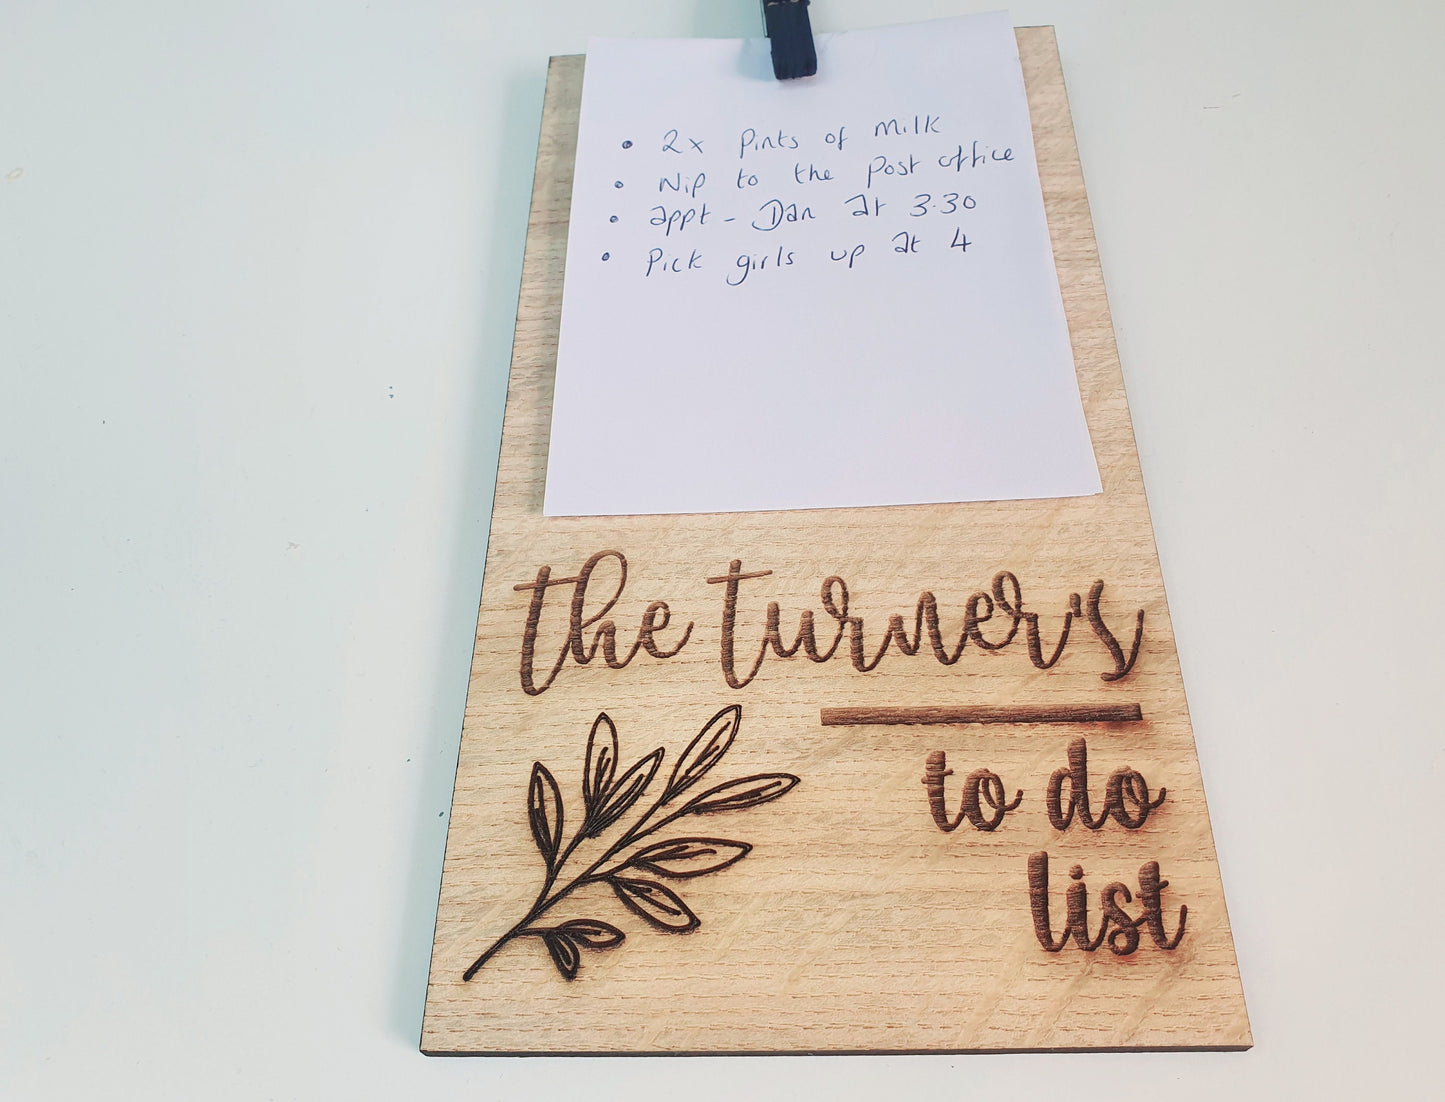 • 2x Pints of Milk
• Nip to the Post office
• appt - Dan at 3.30
• Pick girls up at 4
the turner's
to do
list